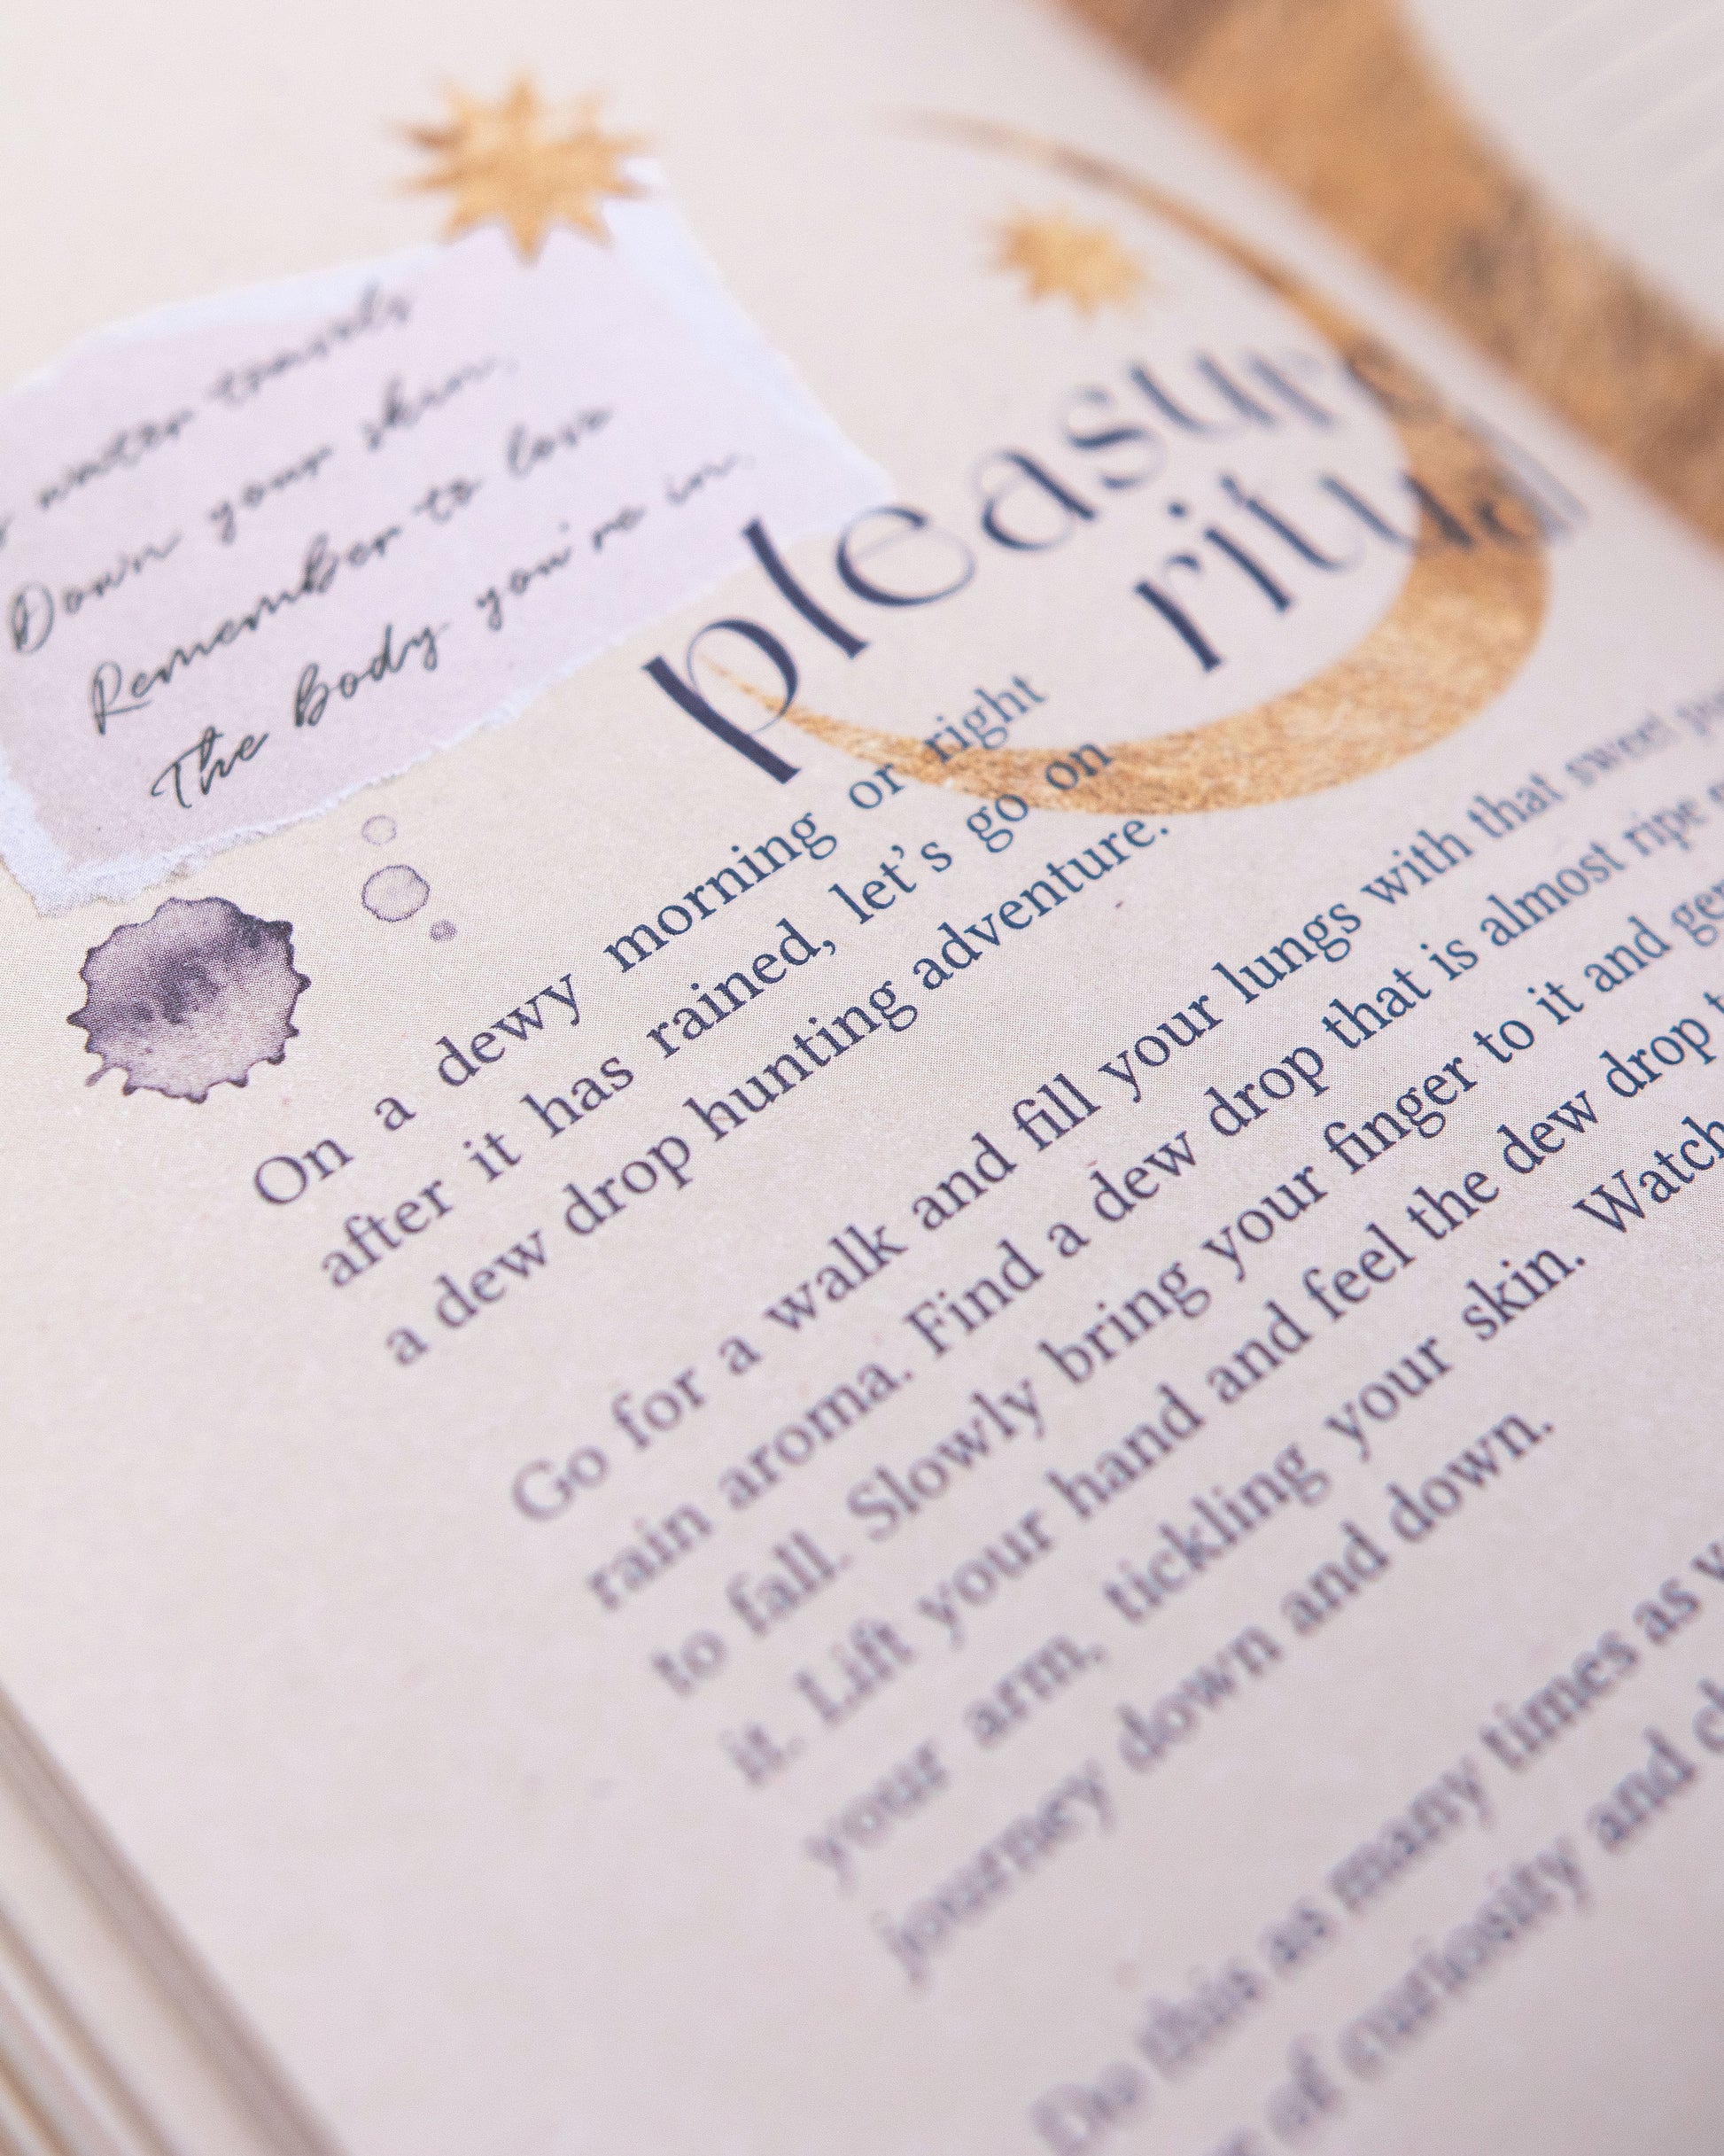 water travels
Down your skin,
Remember to love
The Body you're in.
pleasure
ritual
On a dewy morning or right
after it has rained, let's go on
a dew drop hunting adventure.
Go for a walk and fill your lungs with that sweet
rain aroma. Find a dew drop that is almost ripe
to fall. Slowly bring your finger to it and
it. Lift your hand and feel the dew drop
your arm, tickling your skin. Watch
journey down and down.
Do this as many times as
of curiosity and